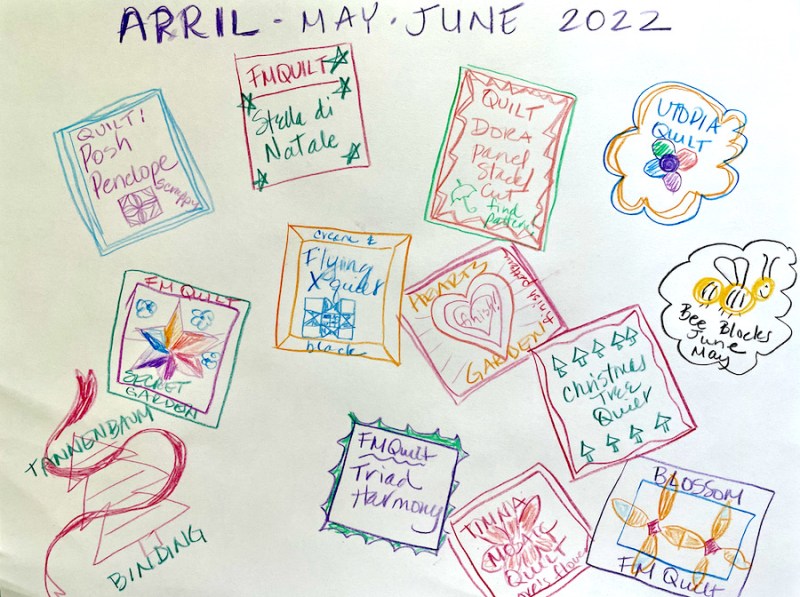 APRIL - MAY - JUNE 2022
FMQUILT
Stella di
Natale
QUILT!
Posh
Penelope
Scrappy
QUILT
DORA
panel
Stack
Cut
find
pattern
UTOPIA
QUILT
cream &
Flying
X quilt
black
HEARTS
GARDEN
finish!
finish
Bee Blocks
June
May
FM QUILT
SECRET
GARDEN
Christmas
Tree
Quilt
TANNENBAUM
BINDING
FMQuilt
Triad
Harmony
TINNA
QUILT
flower
BLOSSOM
FM Quilt